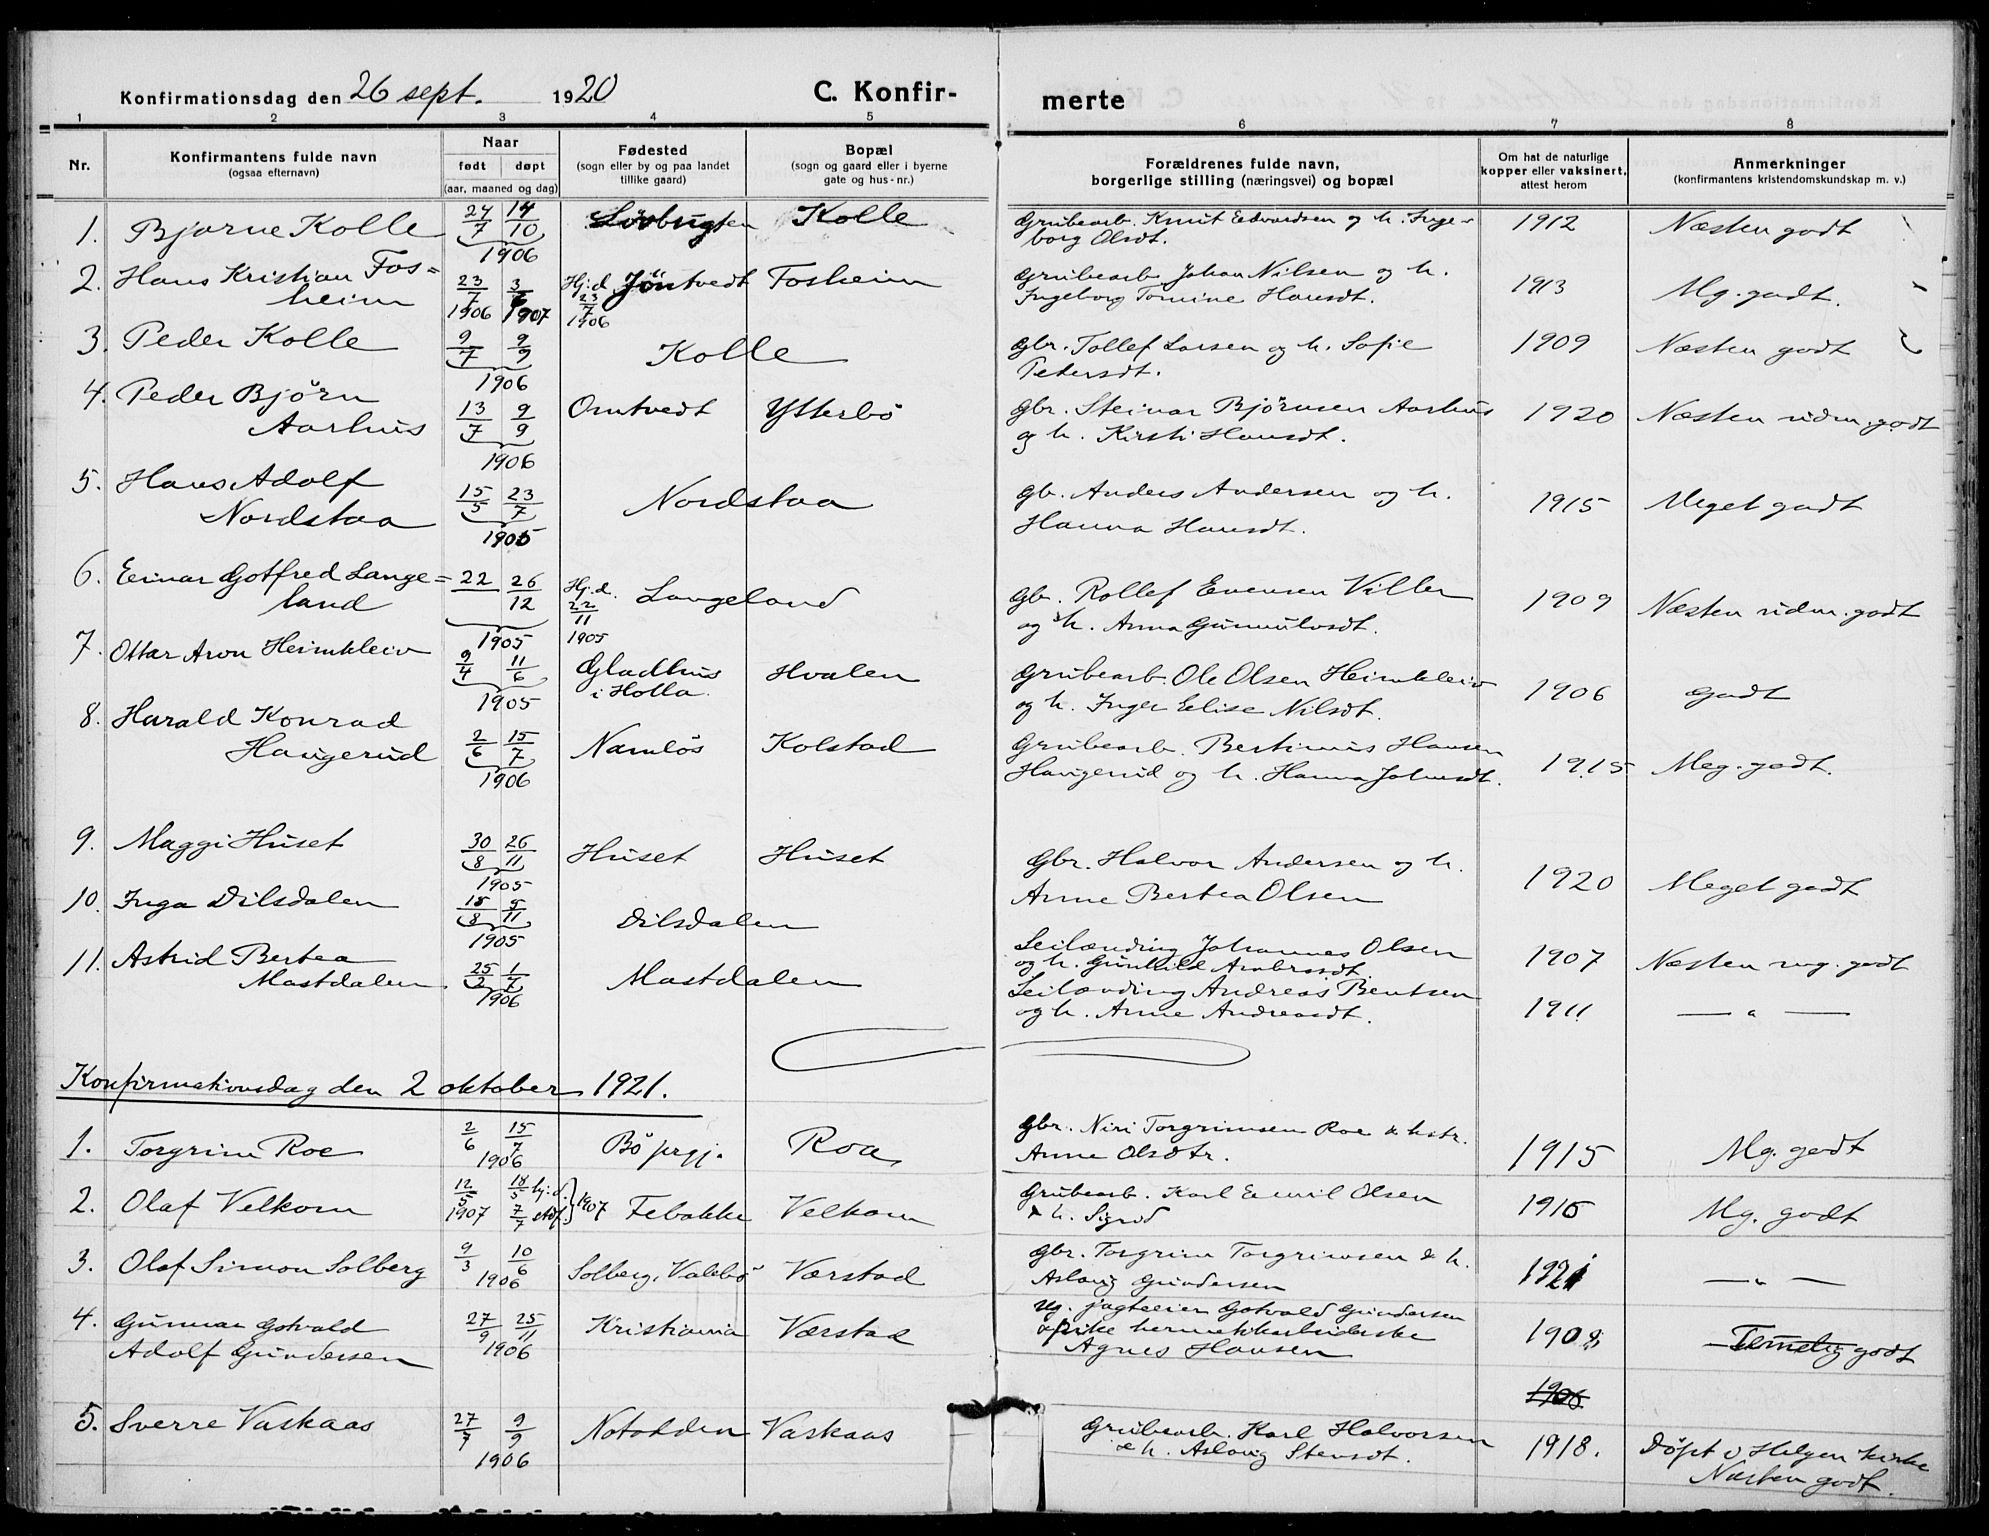 Konfirmationsdag den 26 sept. 1920 C. Konfir-
merte
1 2 3 4 5 6 7 8
Nr.
Konfirmantens fulde navn
(ogsaa efternavn)
Naar
født døpt
(aar, maaned og dag)
Fødested
(sogn eller by og paa landet
tillike gaard)
Bopæl
(sogn og gaard eller i byerne
gate og hus-nr.)
Forældrenes fulde navn,
borgerlige stilling (næringsvei) og bopæl
Om hat de naturlige
kopper eller vaksinert,
attest herom
Anmerkninger
(konfirmantens kristendomskundskap m. v.)
1. Bjarne Kolle 24/7 14/10 1906 Kolle
Grubearb. Knut Edvardsen og h. Inge-
borg Olsdt. 1912 Næsten godt
2. Hans Kristian Fos=
heim 23/7 1906 1907 Hj.d. 23/7 1906 Jöntvedt Fosheim
Grubearb. Johan Nilsen og h.
Ingeborg Tomine Hansdt. 1913 Mg. godt.
3. Peder Kolle 9/7 9/9 1906 Kolle
Gbr. Tollef Larsen og h. Sofie
Petersdt. 1909 Næsten godt
4. Peder Björn
Aarhus 13/7 9/9 1906 Omtvedt Ytterbö
Gbr. Steinar Björnsen Aarhus
og h. Kirsti Hansdt. 1920 Næsten udm. godt
5. Hans Adolf
Nordstaa 15/5 23/7 1905 Nordstaa
Gb. Anders Andersen og h.
Hanna Hansdt. 1915 Meget godt
6. Einar Gotfred Lange=
land 22 26/12 1905 Hj.d. 22/11 1905 Langeland
Gb. Rollef Evensen Viller
og h. Anna Gunnulvsdt. 1909 Næsten udm. godt
7. Ottar Aron Heimkleiv 9/4 11/6 1905 Gladhus
i Holla. Hvalen
Grubearb. Ole Olsen Heimkleiv
og h. Inger Elise Nilsdt. 1906 Godt
8. Harald Konrad
Haugerud 2/6 15/7 1906 Namlös Kolstad
Grubearb. Bertinius Hansen
Haugerud og h. Hanna Johnsdt. 1915 Meg. godt.
9. Maggi Huset 30/8 26/11 1905 Huset Huset
Gbr. Halvor Andersen og h.
Anne Bertea Olsen 1920 Meget godt
10. Inga Dilsdalen 15/8 5/11 1905 Dilsdalen
Leilænding Johannes Olsen
og h. Gunhild Ambrosdt. 1907 Næsten mg. godt
11. Astrid Bertea
Mastdalen 25/2 1/7 1906 Mastdalen
Leilænding Andreas Bentsen
og h. Anne Andreasdt. 1911 — " —
Konfirmationsdag den 2 oktober 1921.
1. Torgrim Roe 2/6 15/7 1906 Bö prgj. Roa
Gbr. Niri Torgrimsen Roe & hstr.
Anne Olsdtr. 1915 Mg. godt
2. Olaf Velkom 12/5 1907 18/5 hj.d. 7/7 stdf. 1907 Febakke Velkom
Grubearb. Karl Emil Olsen
& h. Sigrid 1916 Mg. godt
3. Olaf Simon Solberg 9/3 10/6 1906 Solberg, Valebö Værstad
Gbr. Torgrim Torgrimsen & h.
Aslaug Gundersen 1921 — " —
4. Gunnar Gotvald
Adolf Gundersen 27/9 25/11 1906 Kristiania Værstad
Ug. jagteier Gotvald Gundersen
& pike hermetikkarbeiderske
Agnes Hansen 1908 Temelig godt
1906
5. Sverre Vaskaas 27/7 9/9 1906 Notodden Vaskaas
Grubearb. Karl Halvorsen
& h. Aslaug Stensdt. 1918. Döpt i Helgen kirke
Næsten godt.